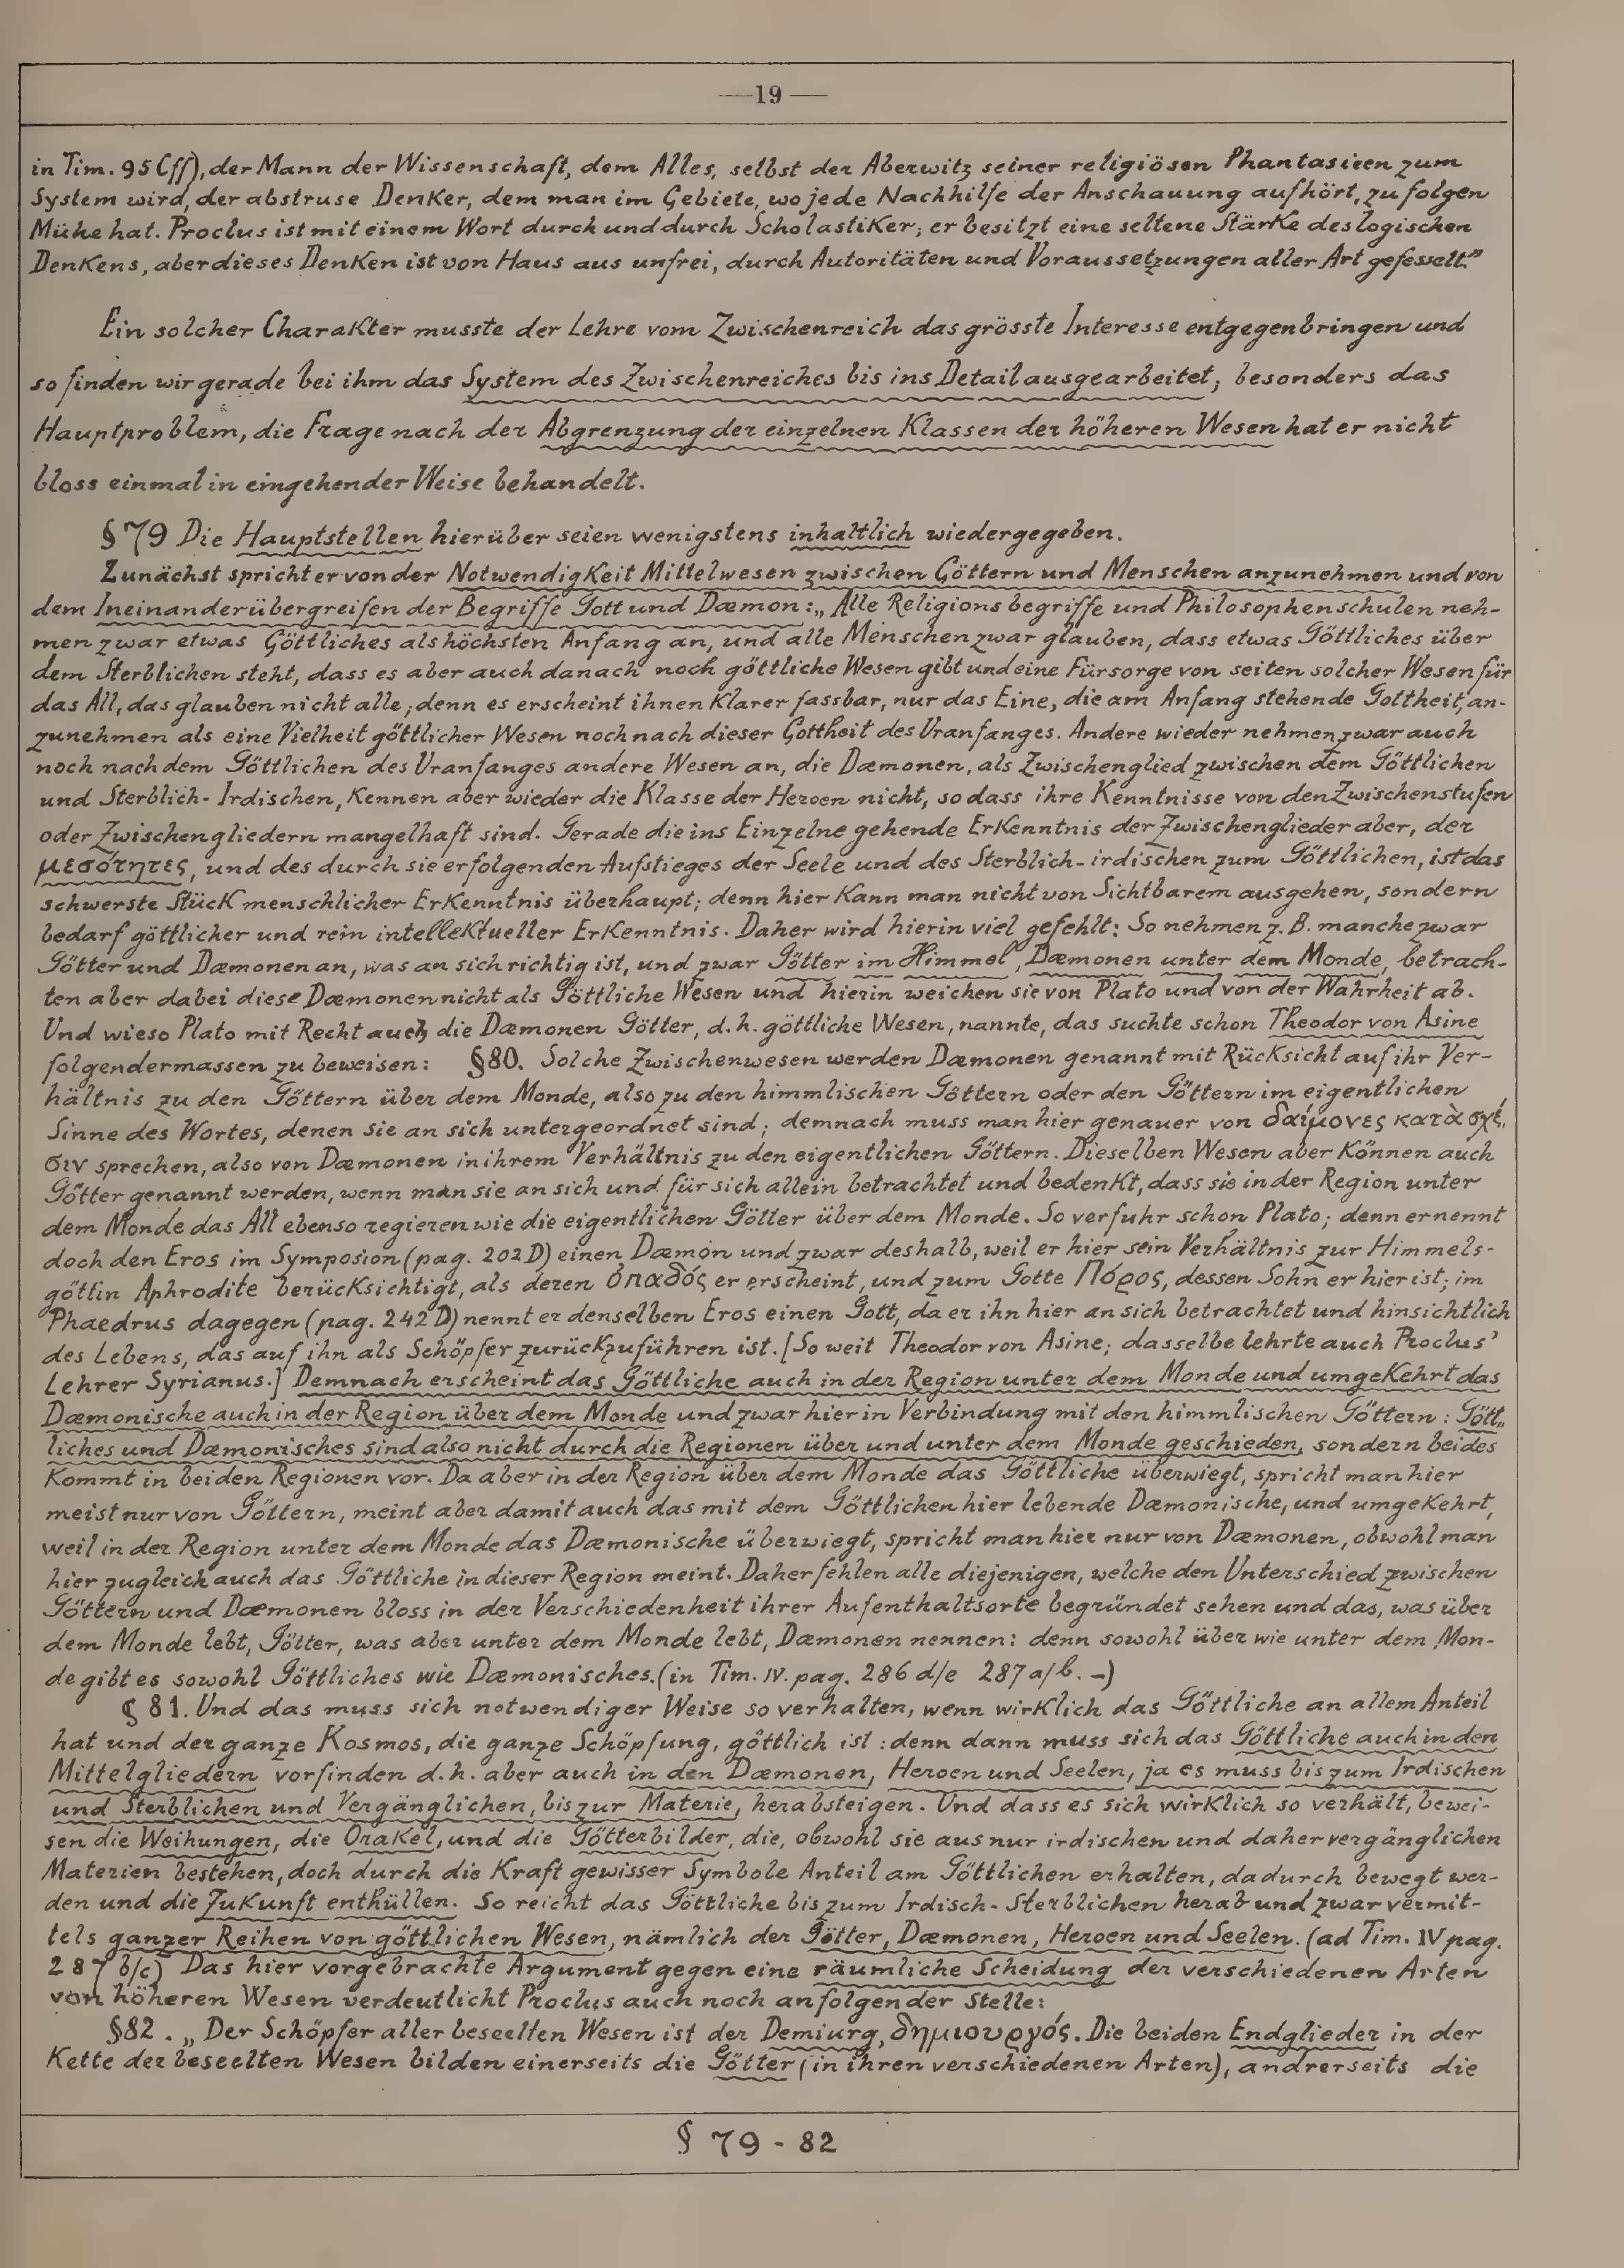 —19—
in Tim. 95 Cff), der Mann der Wissenschaft, dem Alles, selbst der Aberwitz seiner religiösen Phantasieen zum
System wird, der abstruse Denker, dem man im Gebiete, wo jede Nachhilfe der Anschauung aufhört, zu folgen
Mühe hat. Proclus ist mit einem Wort durch und durch Scholastiker; er besitzt eine seltene Stärke des logischen
Denkens, aber dieses Denken ist von Haus aus unfrei, durch Autoritäten und Voraussetzungen aller Art gefesselt."
Ein solcher Charakter musste der Lehre vom Zwischenreich das grösste Interesse entgegenbringen und
so finden wir gerade bei ihm das System des Zwischenreiches bis ins Detail ausgearbeitet; besonders das
Hauptproblem, die Frage nach der Abgrenzung der einzelnen Klassen der höheren Wesen hat er nicht
bloss einmal in eingehender Weise behandelt.
§ 79 Die Hauptstellen hierüber seien wenigstens inhaltlich wiedergegeben.
Zunächst spricht er von der Notwendigkeit Mittelwesen zwischen Göttern und Menschen anzunehmen und von
dem Ineinanderübergreifen der Begriffe Gott und Dæmon: „Alle Religionsbegriffe und Philosophenschulen neh-
men zwar etwas Göttliches als höchsten Anfang an, und alle Menschen zwar glauben, dass etwas Göttliches über
dem Sterblichen steht, dass es aber auch danach noch göttliche Wesen gibt und eine Fürsorge von seiten solcher Wesen für
das All, das glauben nicht alle; denn es erscheint ihnen klarer fassbar, nur das Eine, die am Anfang stehende Gottheit, an-
zunehmen als eine Vielheit göttlicher Wesen noch nach dieser Gottheit des Uranfanges. Andere wieder nehmen zwar auch
noch nach dem Göttlichen des Uranfanges andere Wesen an, die Dæmonen, als Zwischenglied zwischen dem Göttlichen
und Sterblich-Irdischen, kennen aber wieder die Klasse der Heroen nicht, so dass ihre Kenntnisse von den Zwischenstufen
oder Zwischengliedern mangelhaft sind. Gerade die ins Einzelne gehende Erkenntnis der Zwischenglieder aber, der
μεσότητες, und des durch sie erfolgenden Aufstieges der Seele und des Sterblich-irdischen zum Göttlichen, ist das
schwerste Stück menschlicher Erkenntnis überhaupt; denn hier kann man nicht von Sichtbarem ausgehen, sondern
bedarf göttlicher und rein intellektueller Erkenntnis. Daher wird hierin viel gefehlt: So nehmen z. B. manche zwar
Götter und Dæmonen an, was an sich richtig ist, und zwar Götter im Himmel, Dæmonen unter dem Monde, betrach-
ten aber dabei diese Dæmonen nicht als Göttliche Wesen und hierin weichen sie von Plato und von der Wahrheit ab.
Und wieso Plato mit Recht auch die Dæmonen Götter, d. h. göttliche Wesen, nannte, das suchte schon Theodor von Asine
folgendermassen zu beweisen: §80. Solche Zwischenwesen werden Dæmonen genannt mit Rücksicht auf ihr Ver-
hältnis zu den Göttern über dem Monde, also zu den himmlischen Göttern oder den Göttern im eigentlichen
Sinne des Wortes, denen sie an sich untergeordnet sind; demnach muss man hier genauer von δαίμονες κατὰ σχέ-
σιν sprechen, also von Dæmonen in ihrem Verhältnis zu den eigentlichen Göttern. Dieselben Wesen aber können auch
Götter genannt werden, wenn man sie an sich und für sich allein betrachtet und bedenkt, dass sie in der Region unter
dem Monde das All ebenso regieren wie die eigentlichen Götter über dem Monde. So verfuhr schon Plato; denn er nennt
doch den Eros im Symposion (pag. 202 D) einen Dæmon und zwar deshalb, weil er hier sein Verhältnis zur Himmels-
göttin Aphrodite berücksichtigt, als deren ὀπαδός er erscheint, und zum Gotte Πόρος, dessen Sohn er hier ist; im
Phaedrus dagegen (pag. 242 D) nennt er denselben Eros einen Gott, da er ihn hier an sich betrachtet und hinsichtlich
des Lebens, das auf ihn als Schöpfer zurückzuführen ist. [So weit Theodor von Asine; dasselbe lehrte auch Proclus'
Lehrer Syrianus.] Demnach erscheint das Göttliche auch in der Region unter dem Monde und umgekehrt das
Dæmonische auch in der Region über dem Monde und zwar hier in Verbindung mit den himmlischen Göttern: Gött-
liches und Dæmonisches sind also nicht durch die Regionen über und unter dem Monde geschieden, sondern beides
kommt in beiden Regionen vor. Da aber in der Region über dem Monde das Göttliche überwiegt, spricht man hier
meist nur von Göttern, meint aber damit auch das mit dem Göttlichen hier lebende Dæmonische, und umgekehrt,
weil in der Region unter dem Monde das Dæmonische überwiegt, spricht man hier nur von Dæmonen, obwohl man
hier zugleich auch das Göttliche in dieser Region meint. Daher fehlen alle diejenigen, welche den Unterschied zwischen
Göttern und Dæmonen bloss in der Verschiedenheit ihrer Aufenthaltsorte begründet sehen und das, was über
dem Monde lebt, Götter, was aber unter dem Monde lebt, Dæmonen nennen: denn sowohl über wie unter dem Mon-
de gibt es sowohl Göttliches wie Dæmonisches. (in Tim. IV. pag. 286 d/e 287 a/b. —)
§ 81. Und das muss sich notwendiger Weise so verhalten, wenn wirklich das Göttliche an allem Anteil
hat und der ganze Kosmos, die ganze Schöpfung, göttlich ist: denn dann muss sich das Göttliche auch in den
Mittelgliedern vorfinden d. h. aber auch in den Dæmonen, Heroen und Seelen, ja es muss bis zum Irdischen
und Sterblichen und Vergänglichen, bis zur Materie, herabsteigen. Und dass es sich wirklich so verhält, bewei-
sen die Weihungen, die Orakel, und die Götterbilder, die, obwohl sie aus nur irdischen und daher vergänglichen
Materien bestehen, doch durch die Kraft gewisser Symbole Anteil am Göttlichen erhalten, dadurch bewegt wer-
den und die Zukunft enthüllen. So reicht das Göttliche bis zum Irdisch-Sterblichen herab und zwar vermit-
tels ganzer Reihen von göttlichen Wesen, nämlich der Götter, Dæmonen, Heroen und Seelen. (ad Tim. IV pag.
287 b/c) Das hier vorgebrachte Argument gegen eine räumliche Scheidung der verschiedenen Arten
von höheren Wesen verdeutlicht Proclus auch noch an folgender Stelle:
§82. „Der Schöpfer aller beseelten Wesen ist der Demiurg, δημιουργός. Die beiden Endglieder in der
Kette der beseelten Wesen bilden einerseits die Götter (in ihren verschiedenen Arten), andrerseits die
§ 79 - 82